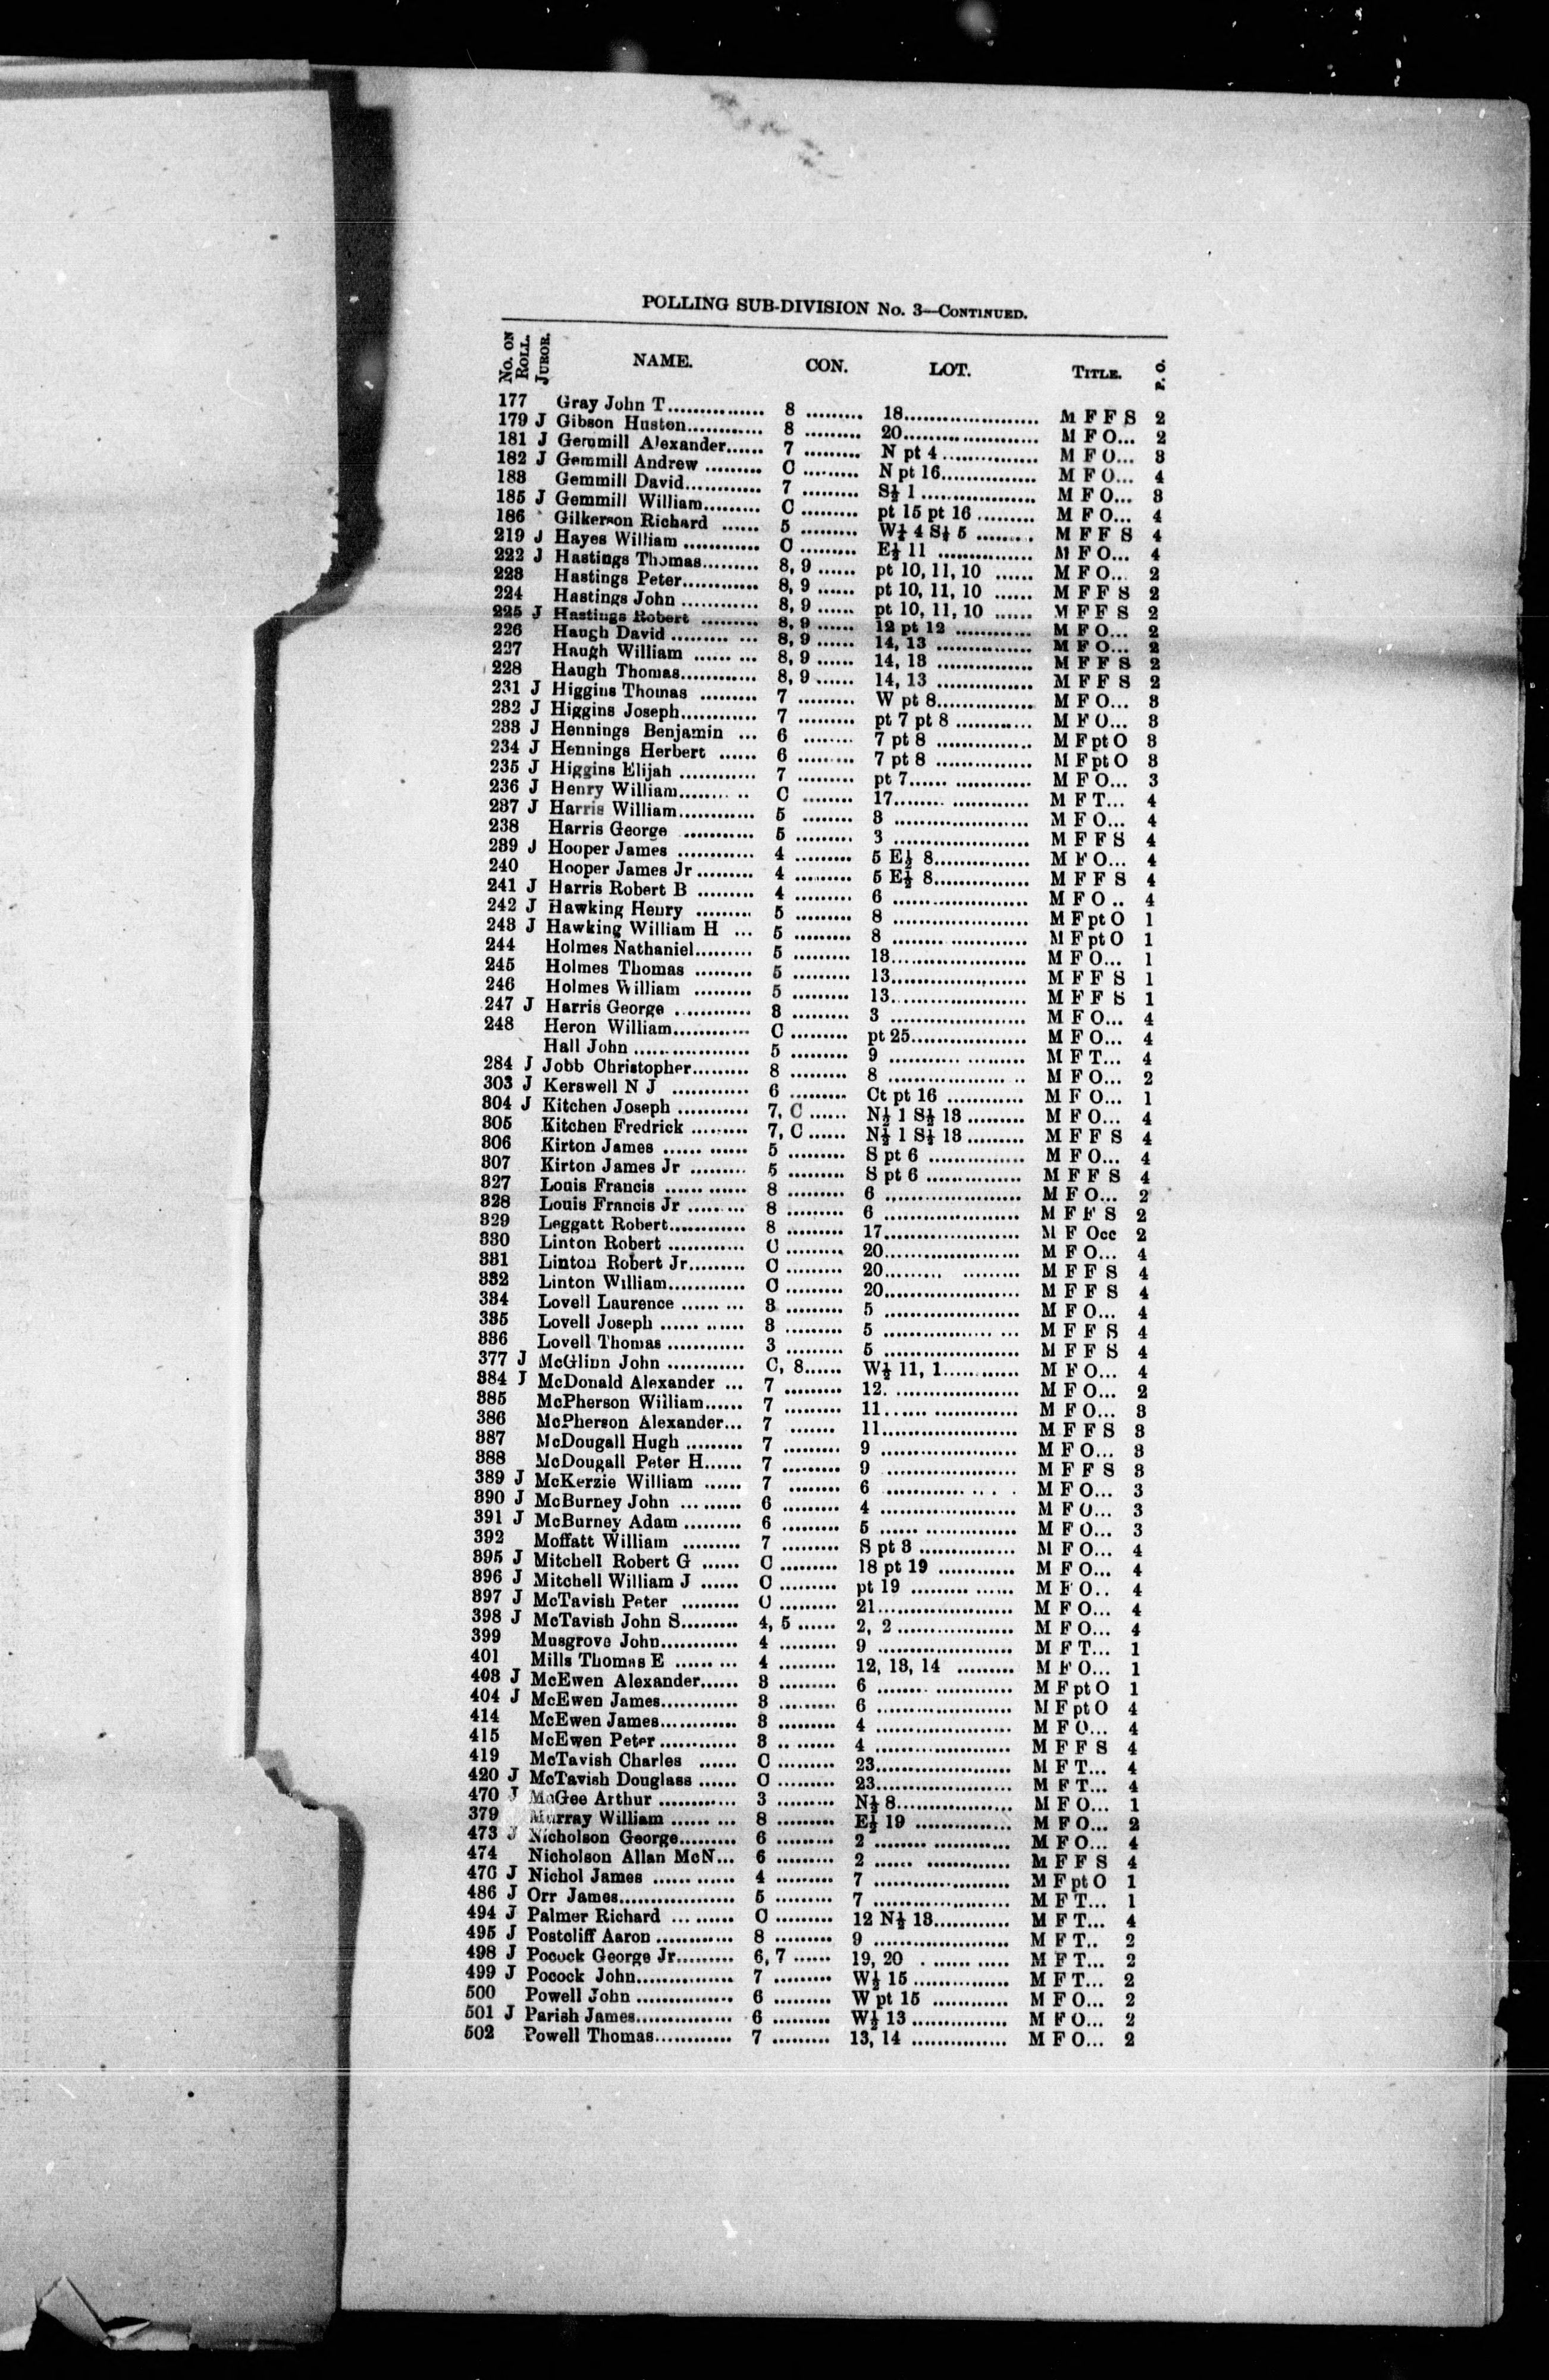 POLLING SUB-DIVISION No. 3—CONTINUED.
No. ON ROLL. JUROR. NAME. CON. LOT. TITLE. P. O.
177 Gray John T............... 8 ......... 18..................... M F F S 2
179 J Gibson Huston............ 8 ......... 20..................... M F O... 2
181 J Gemmill Alexander...... 7 ......... N pt 4 ............... M F O... 3
182 J Gemmill Andrew ......... C ......... N pt 16............... M F O... 4
183 Gemmill David............ 7 ......... S½ 1 .................. M F O... 3
185 J Gemmill William......... C ......... pt 15 pt 16 ......... M F O... 4
186 Gilkerson Richard ...... 5 ......... W½ 4 S½ 5 ........ M F F S 4
219 J Hayes William ............ C ......... E½ 11 ............... M F O... 4
222 J Hastings Thomas......... 8, 9 ...... pt 10, 11, 10 ...... M F O... 2
223 Hastings Peter............ 8, 9 ...... pt 10, 11, 10 ...... M F F S 2
224 Hastings John ............ 8, 9 ...... pt 10, 11, 10 ...... M F F S 2
225 J Hastings Robert ......... 8, 9 ...... 12 pt 12 ............ M F O... 2
226 Haugh David ......... ... 8, 9 ...... 14, 13 ............... M F O... 2
227 Haugh William ...... ... 8, 9 ...... 14, 13 ............... M F F S 2
228 Haugh Thomas............ 8, 9 ...... 14, 13 ............... M F F S 2
231 J Higgins Thomas ......... 7 ......... W pt 8............... M F O... 3
232 J Higgins Joseph............ 7 ......... pt 7 pt 8 ............ M F O... 3
233 J Hennings Benjamin ... 6 ........ 7 pt 8 ............... M F pt O 3
234 J Hennings Herbert ...... 6 ......... 7 pt 8 ............... M F pt O 3
235 J Higgins Elijah ............ 7 ......... pt 7...... ............ M F O... 3
236 J Henry William........ .. C ........ 17........ ............ M F T... 4
237 J Harris William............ 5 ........ 3 ..................... M F O... 4
238 Harris George ........... 5 ......... 3 ..................... M F F S 4
239 J Hooper James ............ 4 ......... 5 E½ 8............... M F O... 4
240 Hooper James Jr ......... 4 ......... 5 E½ 8............... M F F S 4
241 J Harris Robert B ......... 4 ......... 6 ..................... M F O .. 4
242 J Hawking Henry ......... 5 ......... 8 ..................... M F pt O 1
243 J Hawking William H ... 5 ......... 8 ..................... M F pt O 1
244 Holmes Nathaniel......... 5 ......... 13..................... M F O... 1
245 Holmes Thomas ......... 5 ......... 13..................... M F F S 1
246 Holmes William ......... 5 ......... 13..................... M F F S 1
247 J Harris George ............ 3 ......... 3 ..................... M F O... 4
248 Heron William............ C ......... pt 25.................. M F O... 4
Hall John .................. 5 ......... 9 ........... ......... M F T... 4
284 J Jobb Christopher......... 8 ......... 8 ................... .. M F O... 2
303 J Kerswell N J ............ 6 ......... Ct pt 16 ............ M F O... 1
304 J Kitchen Joseph ........... 7, C ...... N½ 1 S½ 13 ......... M F O... 4
305 Kitchen Fredrick ......... 7, C ...... N½ 1 S½ 13 ......... M F F S 4
306 Kirton James ...... ...... 5 ......... S pt 6 ............... M F O... 4
307 Kirton James Jr ......... 5 ......... S pt 6 ............... M F F S 4
327 Louis Francis ...... ...... 8 ......... 6 ..................... M F O... 2
328 Louis Francis Jr ...... ... 8 ......... 6 ..................... M F F S 2
329 Leggatt Robert............ 8 ......... 17..................... M F Occ 2
330 Linton Robert ............ C ......... 20..................... M F O... 4
331 Linton Robert Jr......... C ......... 20......... ......... M F F S 4
332 Linton William............ C ......... 20..................... M F F S 4
334 Lovell Laurence ...... ... 3 ......... 5 ..................... M F O... 4
335 Lovell Joseph ...... ...... 3 ......... 5 ................. ... M F F S 4
336 Lovell Thomas ............ 3 ......... 5 ..................... M F F S 4
377 J McGlinn John ............ C, 8...... W½ 11, 1............ M F O... 4
384 J McDonald Alexander ... 7 ......... 12. ................... M F O... 2
385 McPherson William...... 7 ......... 11...... .............. M F O... 3
386 McPherson Alexander... 7 ....... 11..................... M F F S 3
387 McDougall Hugh ......... 7 ......... 9 ..................... M F O... 3
388 McDougall Peter H...... 7 ......... 9 ..................... M F F S 3
389 J McKerzie William ...... 7 ........ 6 ............ .. . . M F O... 3
390 J McBurney John ... ...... 6 ......... 4 ..................... M F O... 3
391 J McBurney Adam ......... 6 ......... 5 ...... .............. M F O... 3
392 Moffatt William ......... 7 ......... S pt 3 ............... M F O... 4
395 J Mitchell Robert G ...... C ......... 18 pt 19 ............ M F O... 4
396 J Mitchell William J ...... C ......... pt 19 ......... ...... M F O.. 4
397 J McTavish Peter ......... C ......... 21..................... M F O... 4
398 J McTavish John S......... 4, 5 ...... 2, 2 .................. M F O... 4
399 Musgrove John............ 4 ......... 9 ..................... M F T... 1
401 Mills Thomas E ...... ... 4 ......... 12, 13, 14 ......... M F O... 1
403 J McEwen Alexander...... 3 ......... 6 ........ ............ M F pt O 1
404 J McEwen James............ 3 ......... 6 ..................... M F pt O 4
414 McEwen James............ 3 ......... 4 ..................... M F O... 4
415 McEwen Peter ............ 3 .. ...... 4 ..................... M F F S 4
419 McTavish Charles ...... C ......... 23..................... M F T... 4
420 J McTavish Douglass ...... C ......... 23..................... M F T... 4
470 J McGee Arthur ............ 3 ......... N½ 8.................. M F O... 1
379 Murray William ...... ... 8 ......... E½ 19 ............... M F O... 2
473 J Nicholson George......... 6 ......... 2 ........ ............ M F O... 4
474 Nicholson Allan McN... 6 ......... 2 ...... ............. M F F S 4
476 J Nichol James ...... ...... 4 ......... 7 ..................... M F pt O 1
486 J Orr James.................. 5 ......... 7 ..................... M F T... 1
494 J Palmer Richard ... ...... C ......... 12 N½ 13............ M F T... 4
495 J Postcliff Aaron ............ 8 ......... 9 ..................... M F T.. 2
498 J Pocock George Jr......... 6, 7 ...... 19, 20 . ...... ..... M F T... 2
499 J Pocock John............... 7 ......... W½ 15 ............... M F T... 2
500 Powell John ............... 6 ......... W pt 15 ............ M F O... 2
501 J Parish James............... 6 ......... W½ 13 ............... M F O... 2
502 Powell Thomas............ 7 ......... 13, 14 ............... M F O... 2